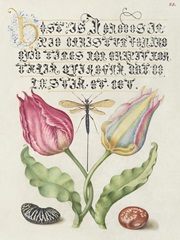 HOSTIS HERODES IM
PIE CHRISTVM VENIRE
QVID TIMES NON ERIPIT MOR
TALIA, QVI REGNA DAT CO
LESTIA.